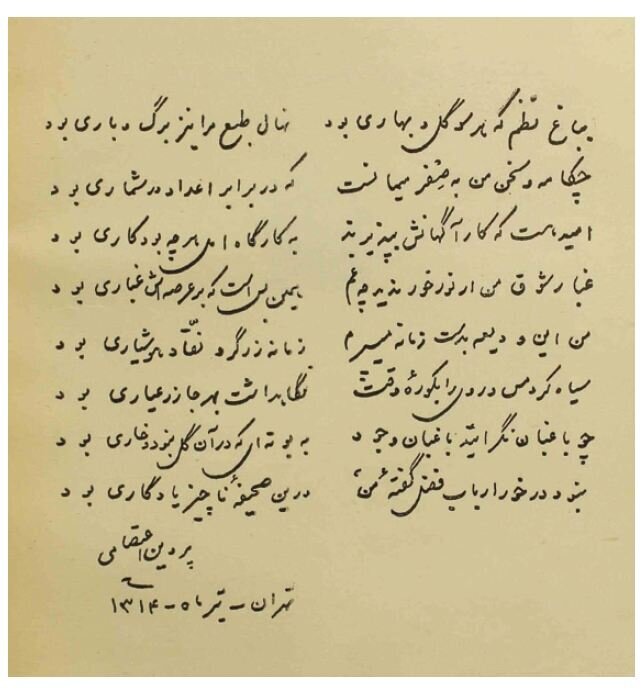 بباغ نظم که هر سو گل و بهاری بود نهال طبع مرا نیز برگ و باری بود
چکامه و سخن من به صفر میمانست که در برابر اعداد در شماری بود
امید هست که کارآگهانش بپذیرند به کارگاه امل هر چه بود کاری بود
غبار شوق من ار نور خور ندید چه غم همین بس است که بر عرصه‌اش غباری بود
من این ودیعه بدست زمانه میسپرم زمانه زرگر و نقّاد هوشیاری بود
سیاه کرد مس و روی را بکورهٔ وقت نگاهداشت بهر جا زر عیاری بود
چو باغبان نگرائید باغبان وجود به بوته‌ای که در آن گل نبود و خاری بود
نبود درخور ارباب فضل گفتهٔ من درین صحیفهٔ ناچیز یادگاری بود
پروین اعتصامی
تهران - تیر ماه - ۱۳۱۴